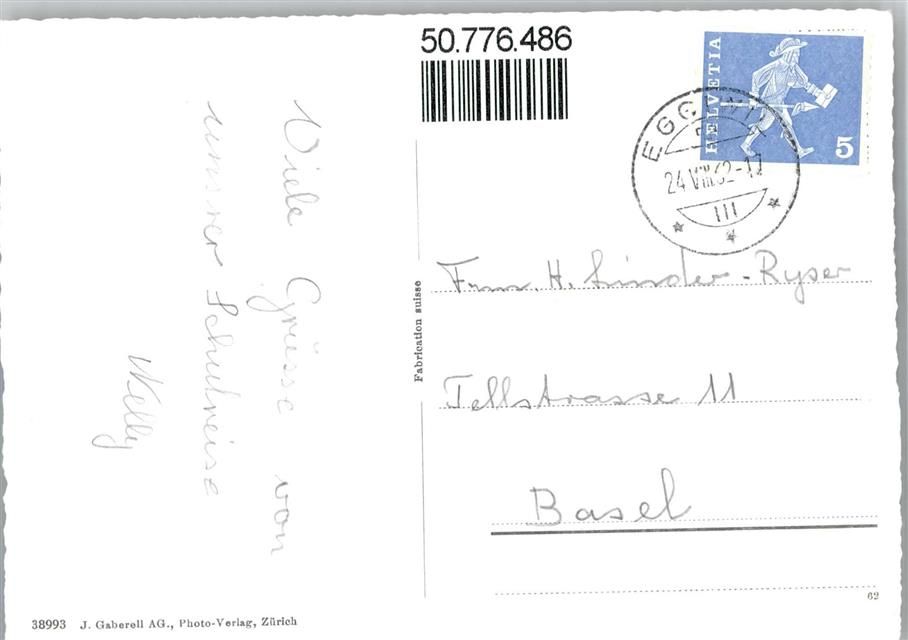 50.776.486
HELVETIA
5
EGGIWIL
24.VIII.62-17
Viele Grüsse von
unsrer Schulreise
Nelly
Fabrication suisse
Frau. H. Linder-Ryser
Tellstrasse 11
Basel
62
38993 J. Gaberell AG., Photo-Verlag, Zürich